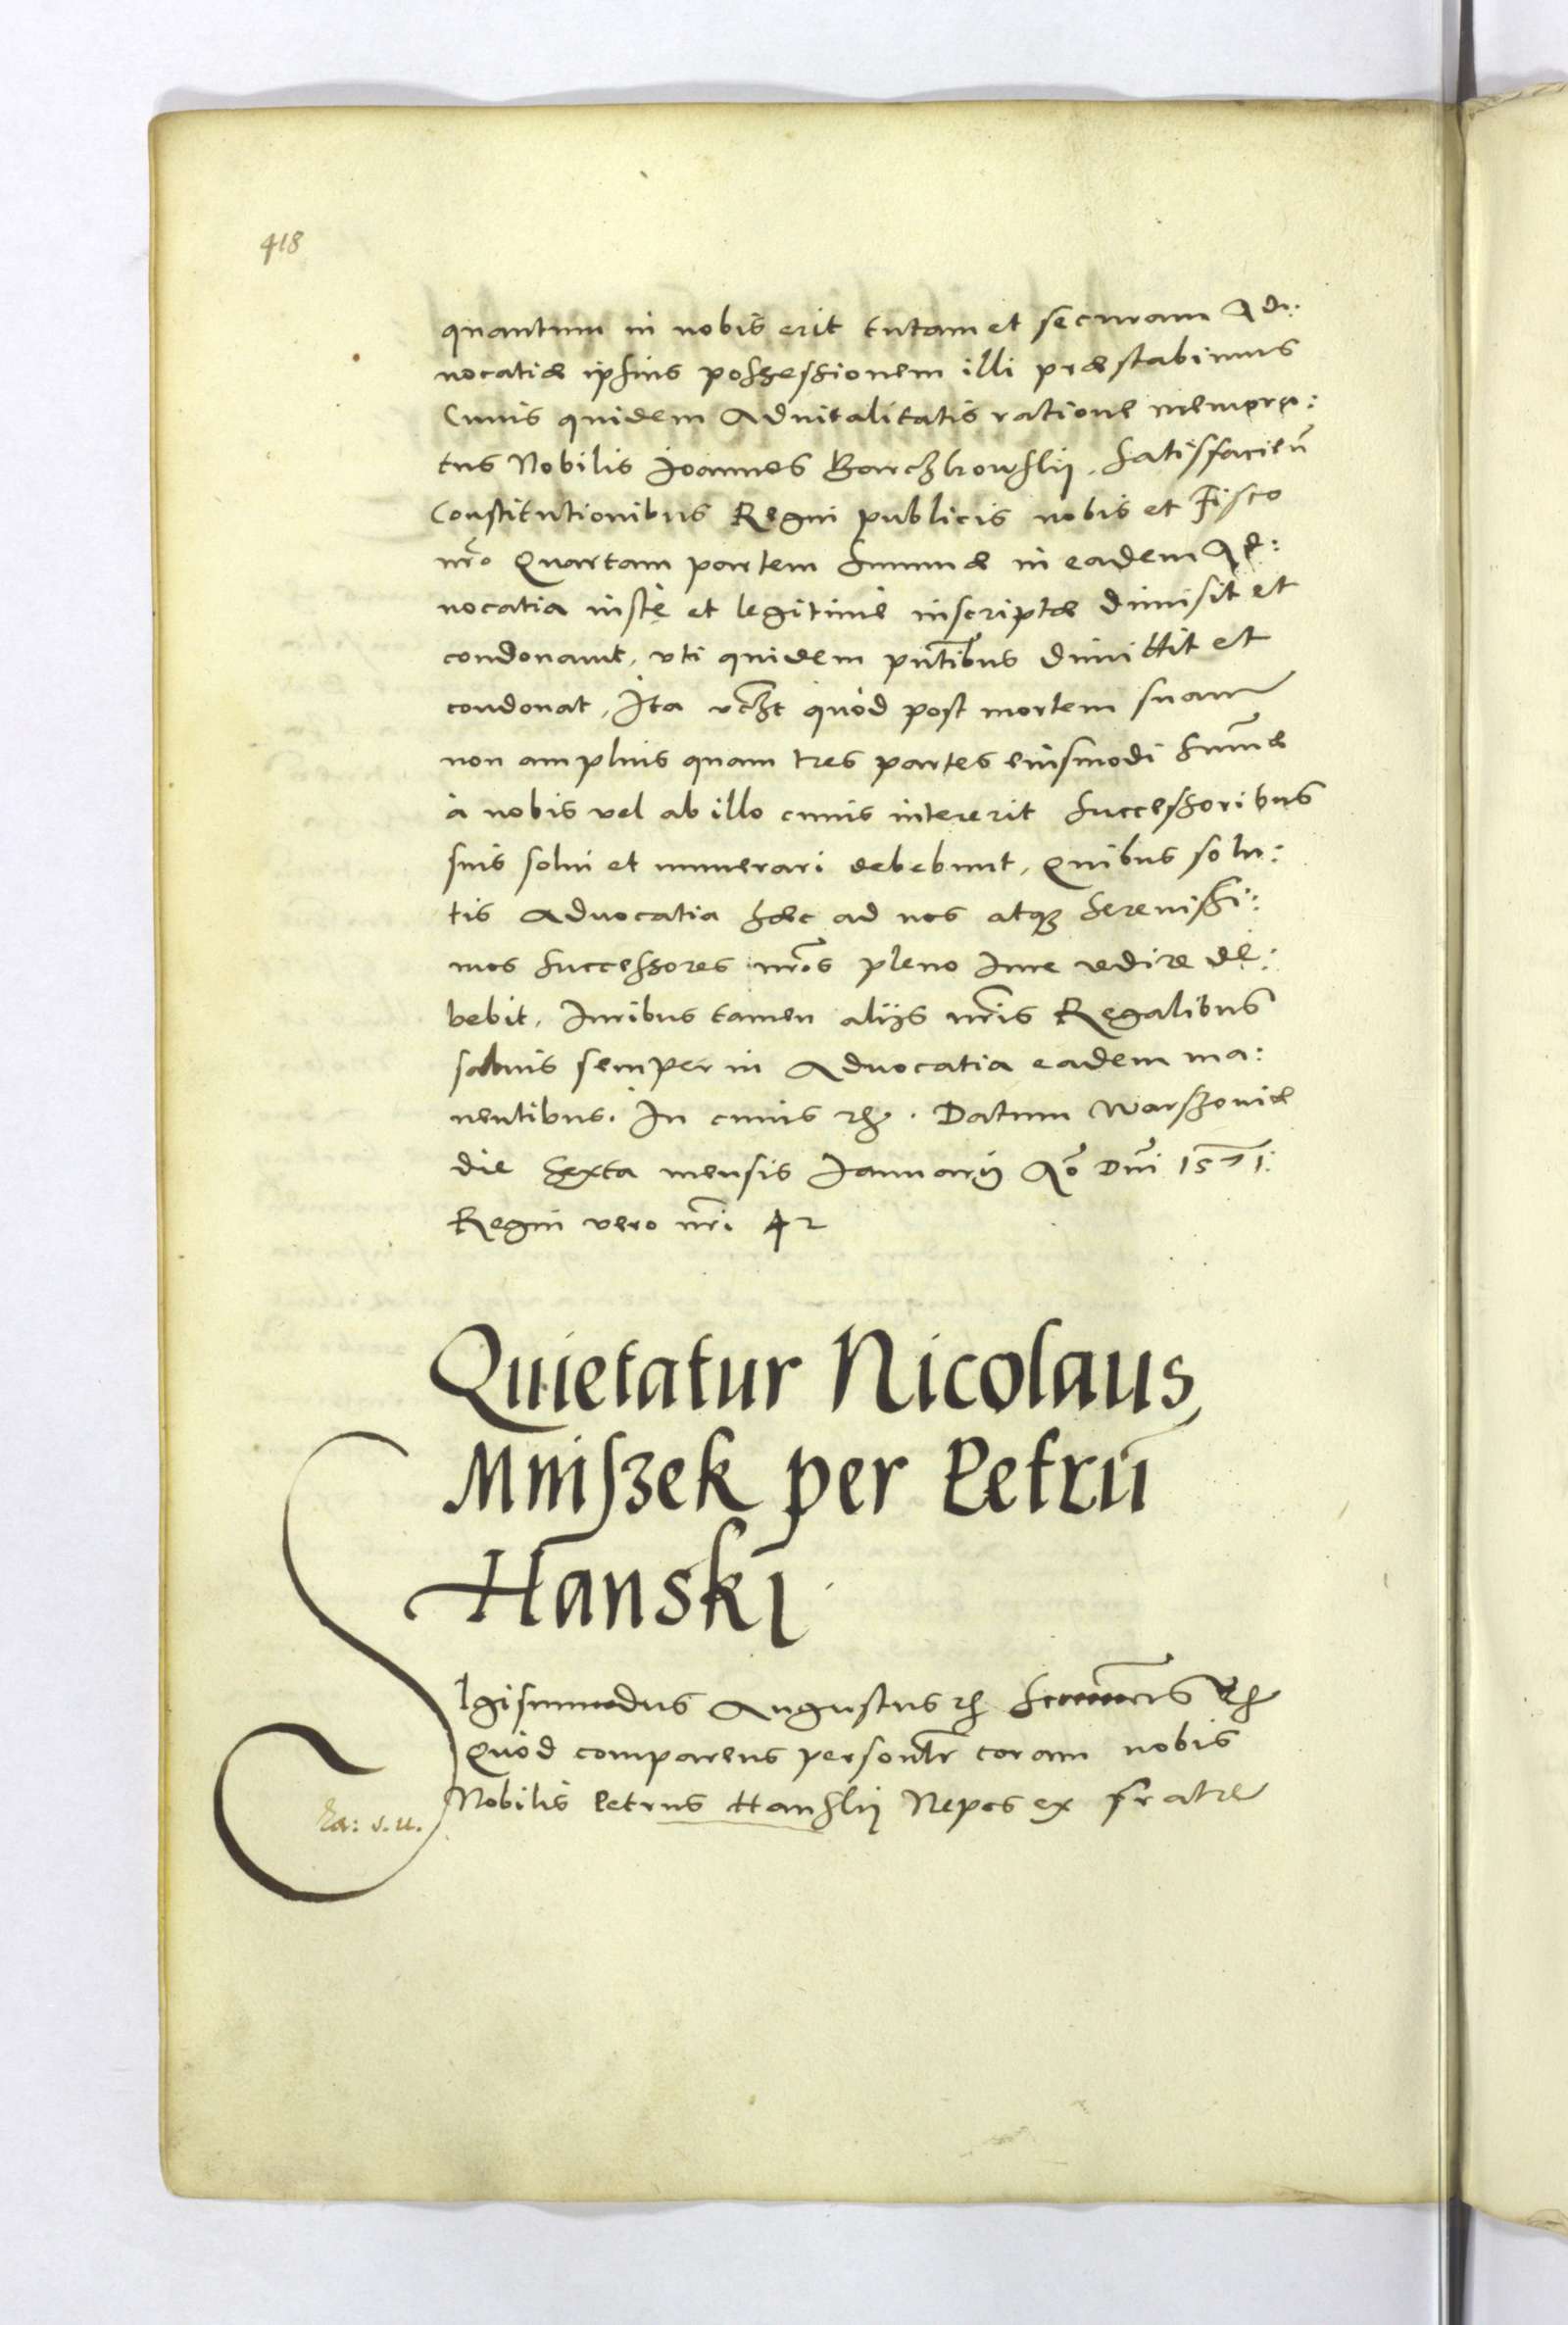 418
quantum in nobis erit tutam et securam Ad:
uocatiæ ipsius possessionem illi præstabimus
Cuius quidem Aduitalitatis ratione memora:
tus Nobilis Joannes Barczkowskij, satisfacieñ
Constitutionibus Regni publicis nobis et Fisco
nr̃o Quartam partem summæ in eadem Ad:
uocatia iustè et legitimè inscriptæ dimisit et
condonauit, vti quidem pñtibus dimittit et
condonat, Ita vtꝫ quòd post mortem suam
non amplius quam tres partes eiusmodi sum̃æ
à nobis vel ab illo cuius intererit successoribus
suis solui et numerari debebunt, Quibus solu:
tis Aduocatia hæc ad nos atqꝫ serenissi:
mos successores nr̃os pleno iure redire de:
bebit, Iuribus tamen alijs nr̃is Regalibus
saluis semper in Aduocatia eadem ma:
nentibus. In cuius rei. Datum Warszouiæ
die Sexta mensis Januarij Aõ Dñi 1571.
Regni vero nr̃i 42
Quietatur Nicolaus
Mniszek per Petrũ
Hanski
Sigismundus Augustus &c. &c.
Quòd comparens personl̃r coram nobis
Nobilis Petrus Hanskij Nepos ex fratre